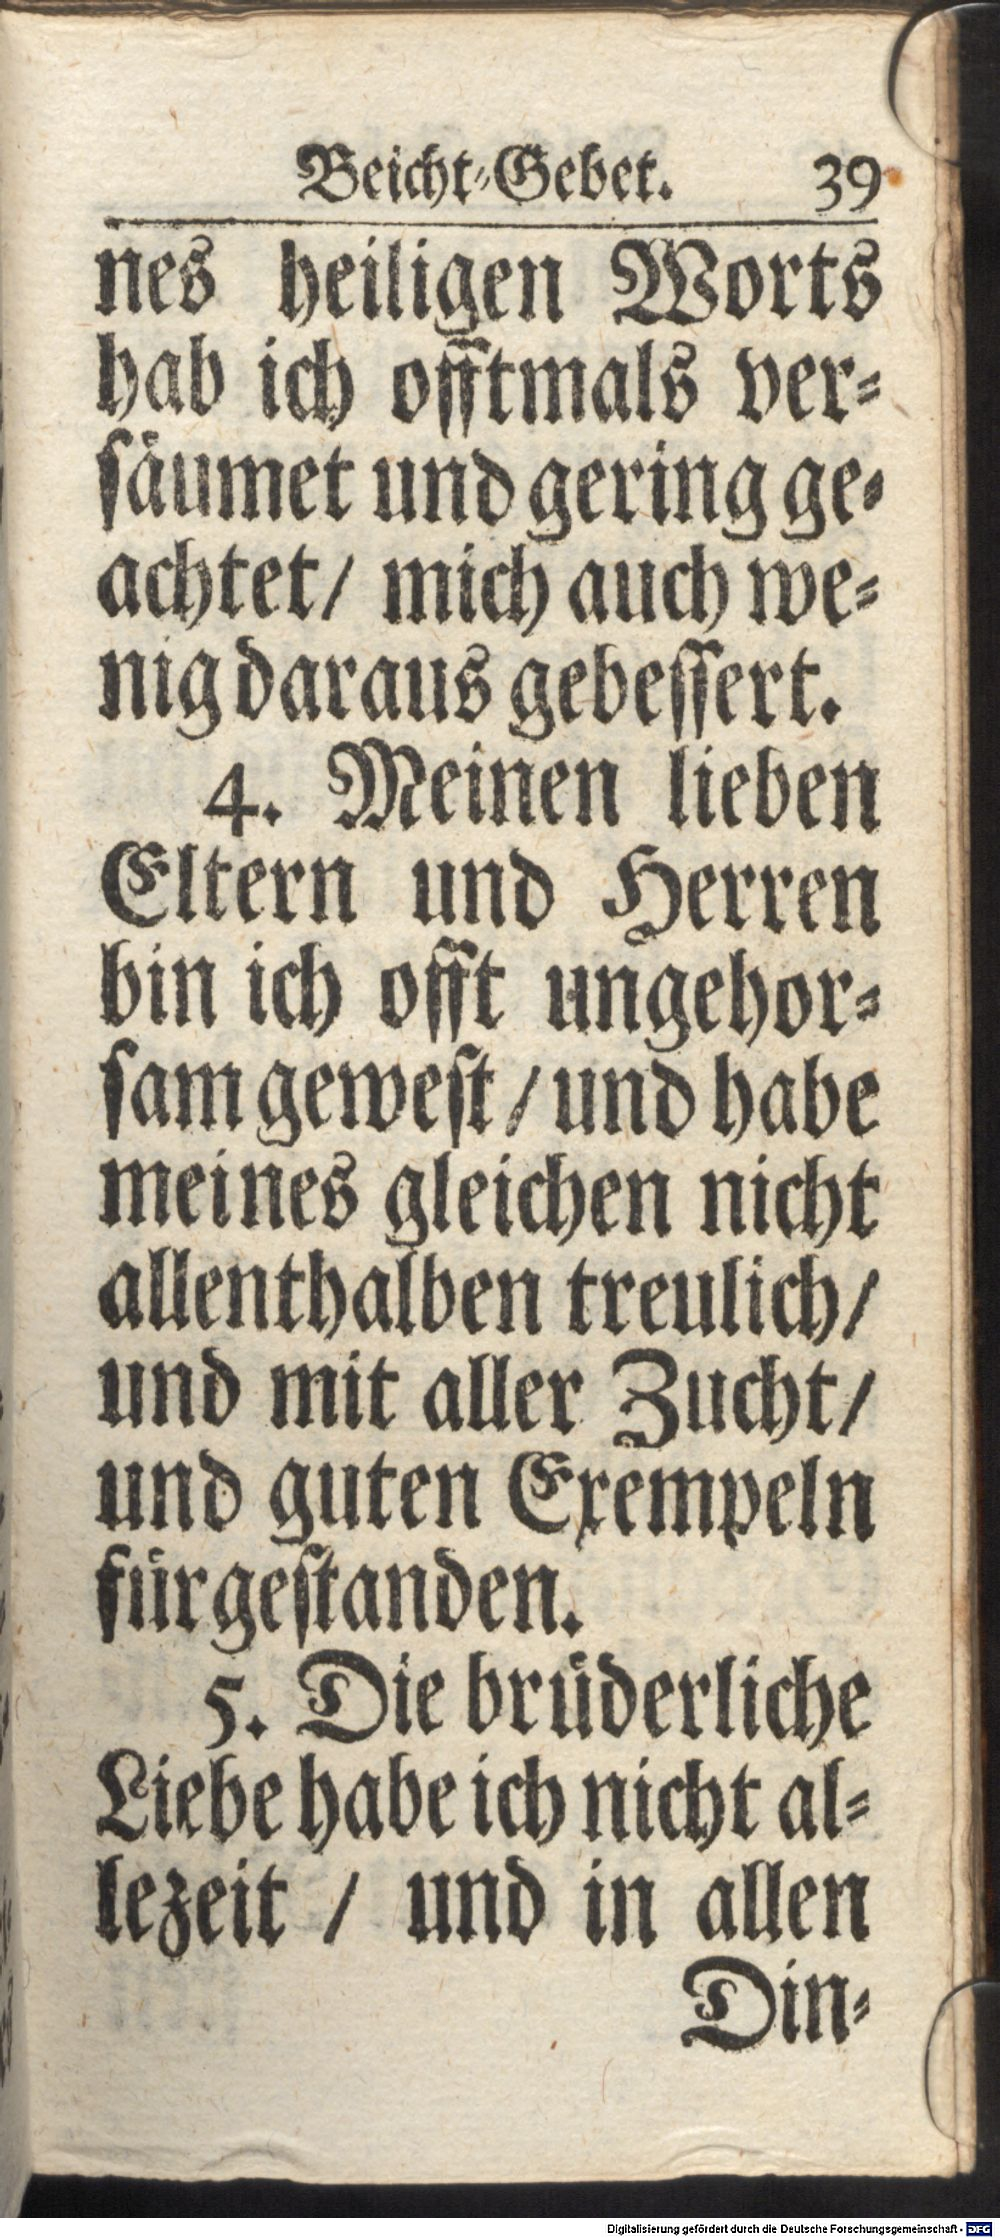 Beicht-Gebet. 39
nes heiligen Worts
hab ich offtmals ver-
säumet und gering ge-
achtet/ mich auch we-
nig daraus gebessert.
4. Meinen lieben
Eltern und Herren
bin ich offt ungehor-
sam gewest / und habe
meines gleichen nicht
allenthalben treulich/
und mit aller Zucht/
und guten Exempeln
fürgestanden.
5. Die brüderliche
Liebe habe ich nicht al-
lezeit / und in allen
Din-
Digitalisierung gefördert durch die Deutsche Forschungsgemeinschaft - DFG